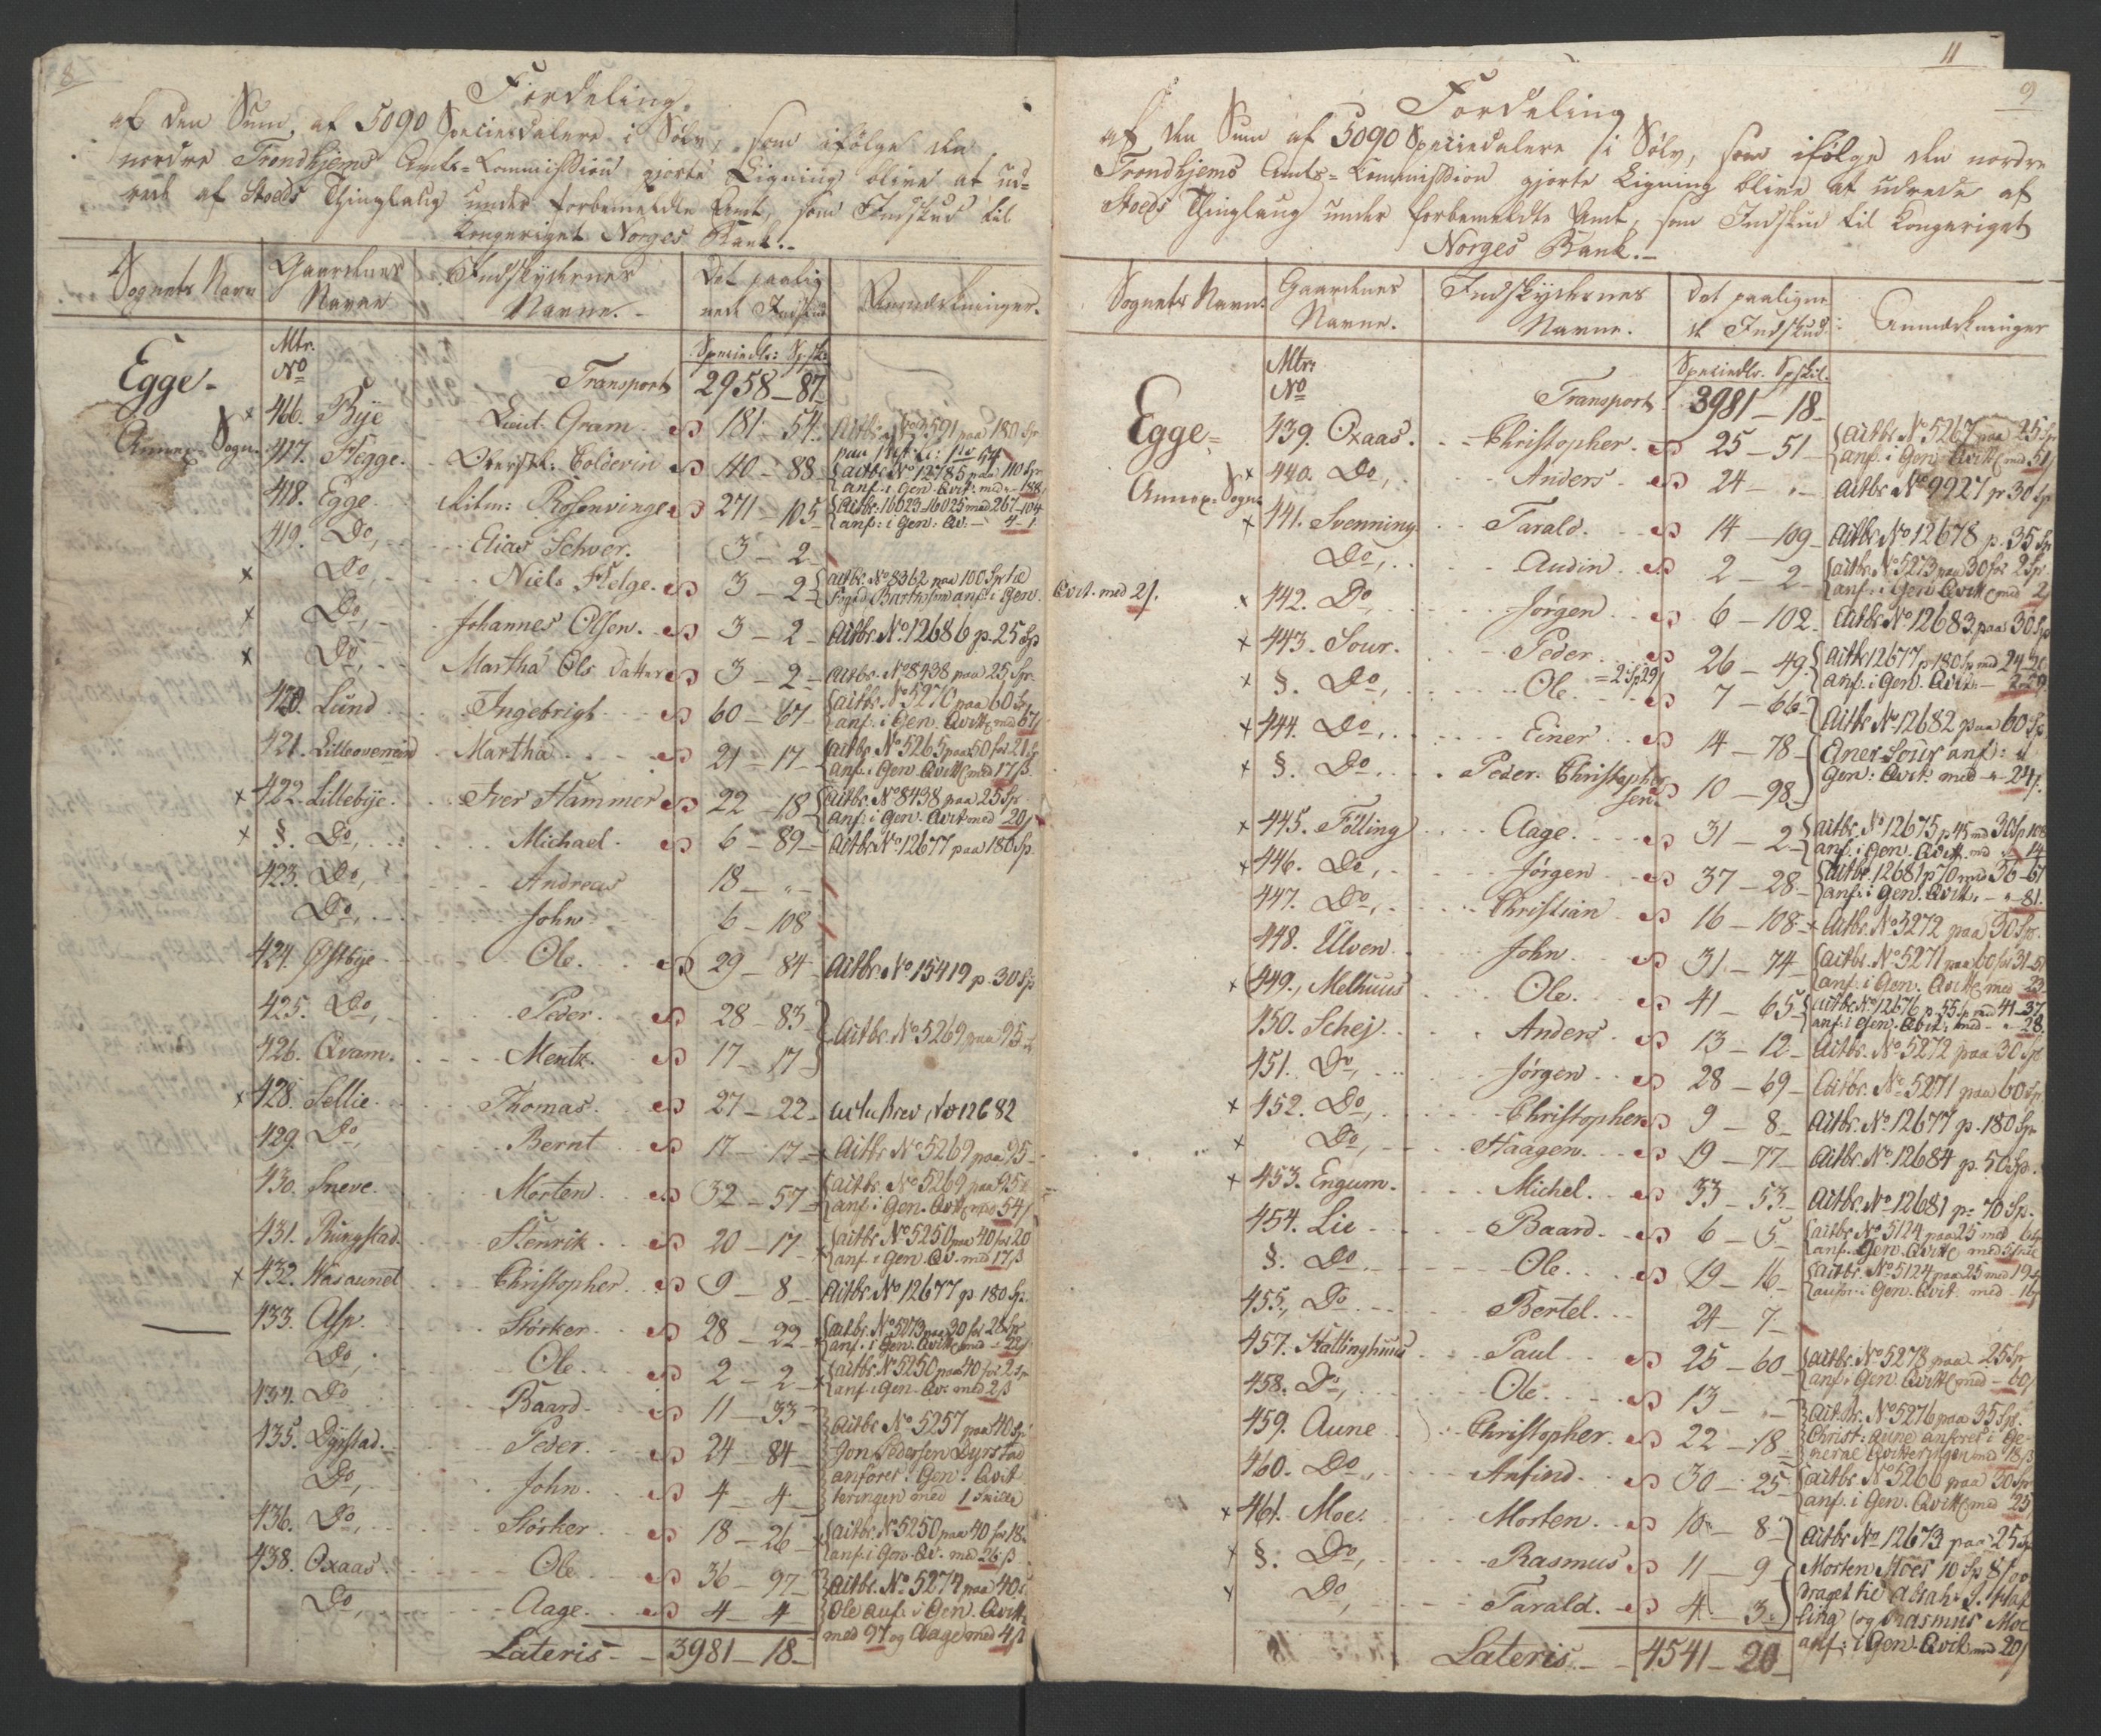 8
Fordeling
af den Sum af 5090 Speciesdalere i Sølv, som ifølge den
nordre Trondhjems Amts-Commission gjorte Ligning blive at ud-
rede af Stoeds Thinglaug under forbemeldte Amt, som Indskud til
Kongeriget Norges Bank.-
Sognets Navn
Gaardenes Navne
Indskydernes Navne.-
Det paalignede Indskud
Anmærkninger.
Mtr. No
Speciedlr: Spsk:
Egge-
Annex-Sogn.
Transport 2958-87
x 416. Bye Lieut. Gram 181-54. Actbr. No 3591 paa 180 Sp
417. Hegge. Oberstl. Coldevin 40-88 Actbr. No 12785 paa 40 Sp
anf: i Gen. Qvit: med - 88
418. Egge Ritm: Rosenvinge 271-105 Actbr: 16023-16025 med 267-104
anf: i Gen: Qv: - 4-1.
419. Do, Elias Schver. 3-2
x Do, Niels Helge. 3-2 Actbr. No 8362 paa 100 Sp
anf: i Gen. Qvit. med 2/.
x Do, Johannes Olsen. 3-2 Actbr. No 12686 p. 25 Sp
x Do, Martha Ols datter 3-2 Actbr. No 8438 paa 25 Sp.
420. Lund Ingebrigt 60-67 Actbr. No 5270 paa 60 Sp
anf: i Gen. Qvitt. med 67
421. Martha 21-17 Actbr. No 5265 paa 50 for 21 Sp
anf: i Gen. Qvitt med 17 ß.
x 422. Lillebye. Iver Hammer 22-18 Actbr. No 8438 paa 25 Sp
anf: i Gen. Qvit med 20
x §. Do, Michael. 6-89 Actbr No 12677 paa 180 Sp.
423. Do, Andreas 18-"-
Do, John 6-108
424. Østbye Ole. 29-84 Actbr. No 15419 p. 30 Sp
425. Do, Peder. 28-83 Actbr. No 5269 paa 95
426. Qvam. Mentz. 17-17
x 428. Sellie. Thomas. 27-22 Actie Brev No 12682
429. Do, Bernt 17-17 Actbr No 5269 paa 95
430. Sneve. Morten. 32-57 Actbr. No 5269 paa 95
anf: i Gen. Qvitt med 54
431. Rungstad. Henrik 20-17 Actbr. No 5250 paa 40 for 20
anf. i Gen. Qv. med 17 ß
x 432. Wasaunet Christopher. 9-8 Actbr. No 12677 p. 180 Sp.
433. Asp. Størker. 28-22 Actbr. No 5273 paa 30 for 28 Sp
anf: i Gen. Qvitt med - 22
Do, Ole. 2-2 Actbr. No 5250 paa 40 for 2 Sp
anf: i Gen. Qv. med 2 ß
434. Do Baard. 11-33 Actbr No 5257 paa 40 Sp
435. Dyrstad. Peder. 24-84 Jon Pedersen Dyrstad
anføres i Gen. Qvit-
Do, John. 4-4 teringen med 1 skilli
436. Do, Størker 18-26 Actbr. No 5250 paa 40 for 18
anf: i Gen. Qv. med 26 ß
438. Oxaas. Ole 36-97 Actbr. No 5274 paa 40
Do, Aage. 4-4 Ole anf: i Gen. Qvitt
med 97 og Aage med 4 ß
Lateris 3981-18-
11
9
Fordeling
af den Sum af 5090 Speciedalere i Sølv, som ifølge den nordre
Trondhjems Amts-Kommission gjorte Ligning blive at udrede af
Stoeds Thinglaug under forbemeldte Amt, som Indskud til Kongeriget
Norges Bank.-
Sognets Navn.
Gaardenes Navne.
Indskydernes Navne.
Det paalignede Indskud.
Anmærkninger
Mtr: No
Speciedlr. Spskil.
Egge-
Annex-Sogn.
Transport 3981-18-
439. Oxaas. Christopher. 25-51 Actbr. No 5267 paa 25 Sp
anf. i Gen. Qvitt med 51
x 440. Do, Anders. 24-"- Actbr No 9927 p. 30 Sp
x 441. Svenning. Tarald. 14-109 Actbr No 12678 p. 35 Sp
Do, Audin. 2-2 Actbr. No 5273 paa 30 for 2 Sp.
anf: i Gen Qvitt med 2
x 442. Do, Jørgen 6-102. Actbr No 12683. paa 30 Sp
x 443. Sour. Peder. 26-49. Actbr 12677 p 180 Sp med 24-20
anf: i Gen. Qvit: - 2-29.
x §. Do, Ole. = 2 Sp 29 7-66
Actbr No 12682 paa 60 Sp.
x 444. Do, Einer. 14-78 Ener Sour anf: i
x §. Do, Peder Christophersen 10-98 Gen: Qvit: med - 24
x 445. Følling Aage. 31-2 Actbr. No 12675 p 45 med 30 Sp 108
anf. i Gen. Qvitt. med 14
x 446. Do, Jørgen 37-28 Actbr. 12681 p 70 med 36-67
anf: i Gen. Qvitt. - 81.
447. Do, Christian 16-108 Actbr. No 5272 paa 30 Sp.
448. Ulven. John. 31-74 Actbr. No 5271 paa 60 for 31-51
anf. i Gen. Qvitt. med 23
x 449. Melhuus Ole. 41-65 Actbr. No 12676 p. 55 p med 41-37
anf: i Gen. Qvit: med - 28.
450. Schej. Anders. 13-12 Actbr. No 5272 paa 30 Sp
451. Do, Jørgen 28-69 Actbr. No 5271 paa 60 Sp
x 452. Do, Christopher 9-8 Actbr. No 12677 p. 180 Sp
x Do, Haagen. 19-77 Actbr. No 12684 p. 50 Sp.
x 453. Engum. Michel. 33-53 Actbr. No 12681 p. 70 Sp.
454. Lie Baard. 6-5 Actbr. No 5124 paa 25 med 6 Sp
anf. Gen. Qvitt med 5 skil
§. Do Ole. 19-16 Actbr. No 5124 paa 25 med 19 Sp
anf: i Gen. Qvit. med - 16
455. Do Bertel. 24-7
457. Hallinghuus Paul 25-60 Actbr. No 5278 paa 25 Sp
anf: Gen. Qvitt med - 60
458. Do, Ole. 13- - Actbr. No 5276 paa 35 Sp.
459. Aune Christopher. 22-18 Christ: Aune anføres i Ge-
neral Qvitteringen med 18 ß
460. Do. Anfind. 30-25 Actbr. No 5266 paa 30 Sp
anf. i Gen. Qvitt med 25
x 461. Moe. Morten. 10-8 Actbr No 12673 paa 25 Sp
x §. Do, Rasmus 11-9 Morten Moes 10 Sp 8/
x Do, Tarald. 4-3 og Rasmus Moe
anf: i Gen. Qvit med 20
Lateris 4541-20-